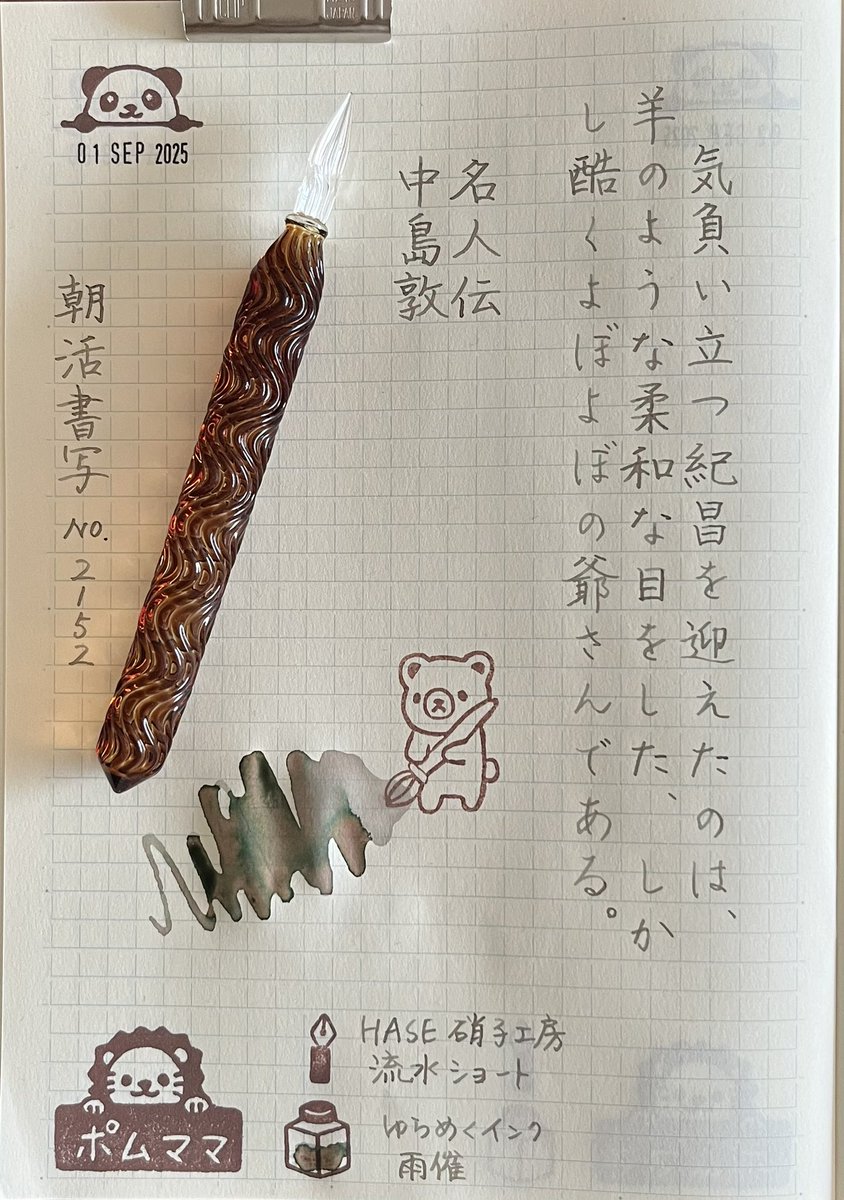 気負い立つ紀昌を迎えたのは、
羊のような柔和な目をした、しか
し酷くよぼよぼの爺さんである。
名人伝
中島敦
01 SEP 2025
朝活書写 NO.2152
HASE 硝子工房
流水ショート
ゆらめくインク
雨催
ポムママ